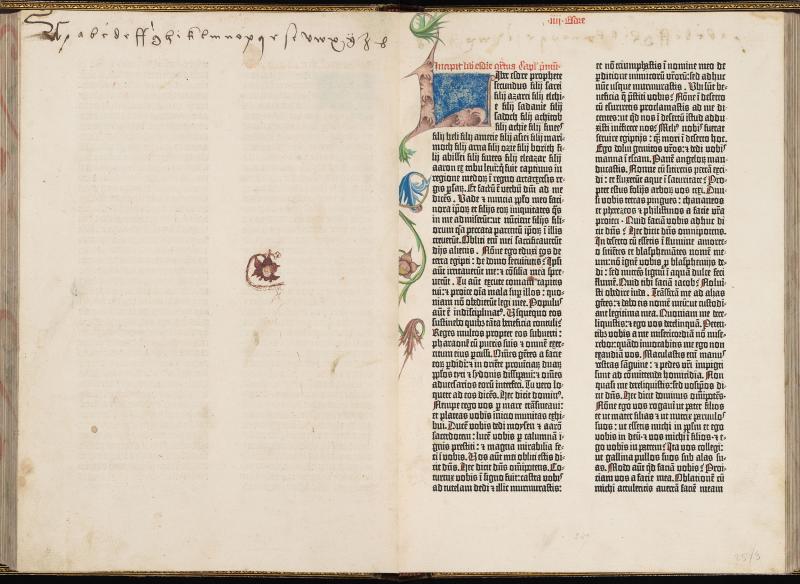 a b c d e f g h i k l m n o p q r s t v w x y z
iiii Esdre
Incipit lib esdre qrtus Capl pmu
Liber esdre prophete
secundus filij sarei
filij azarei filij elchie
filij sadanie filij
sadoch filij achitob
filij achie filij finees
filij heli filij amerie filij asiei filij mari-
moth filij arna filij ozie filij borith fi-
lij abissei filij finees filij eleazar filij
aaron ex tribu leui: q fuit captiuus in
regione medoꝝ ī regno artarxersis re-
gis psaꝝ. Et factū ē uerbū dnī ad me
dicēs. Vade ⁊ nuncia pplo meo faci-
nora ipoꝝ et filijs eoꝝ iniquitates qs
in me admiserūt: ut nūcient filijs fili-
orum qa peccata parentū ipoꝝ ī illis
creuerūt. Obliti enī mei sacrificauerūt
dijs alienis. Nōne ego eduxi eos de
terra egipti: de domo seruitutis? Ipsi
aūt irritauerūt me: ⁊ cōsilia mea spre-
uerūt. Tu aūt excute comam capitis
tui: ⁊ proice oīa mala sup illos: quo-
niam nō obedierūt legi mee. Populus
aūt ē indisciplinat9. Usquequo eos
sustinebo quibs tāta beneficia contuli?
Reges multos propter eos subuerti:
pharaonē cū pueris suis ⁊ omnē exer-
citum eius pcussi. Omēs gētes a facie
eoꝝ pdidi: ⁊ in oriēte prouīciaꝝ duaꝝ
pplos tyri ⁊ sydonis dissipaui: ⁊ omēs
aduersarios eorū interfeci. Tu vero lo-
quere ad eos dicēs. Hec dicit domin9.
Nempe ego vos p mare trāsmeaui:
et plateas vobis inicio munitas exhi-
bui. Ducē vobis dedi moysen ⁊ aarō
sacerdotem: lucē vobis p columnā i-
gnis prestiti: ⁊ magna mirabilia fe-
ci ī vobis. Uos aūt mei obliti estis di-
cit dn̄s. Hec dicit dn̄s omīpotens. Co-
turnix vobis ī signo fuit: castra vobis
ad tutelam dedi ⁊ illic murmurastis:
et nō triumphastis ī nomine meo de
pditione inimicorū vrorū: sed adhuc
nūc usque murmurastis. Ubi sūt be-
neficia q pstiti vobis? Nōne ī deserto
cū esuriretis proclamastis ad me di-
centes: ut qd nos ī desertū istud addu-
xisti inficere nos? Meli9 nobis fuerat
seruire egiptijs: q mori ī deserto hoc.
Ego dolui gemitus vros: ⁊ dedi vobis
manna ī escam. Panē angeloꝝ man-
ducastis. Nonne cū sitiretis petrā exci-
di: et fluxerūt aque ī saturitate? Pro-
pter estus folijs arboꝝ vos texi. Diui-
si vobis terras pingues: chananeos
et pherezeos ⁊ philistinos a facie vra
proieci. Quid faciā vobis adhuc di-
cit dn̄s? Hec dicit dn̄s omnipotens.
In deserto cū essetis ī flumine amorre-
o sitiētes et blasphemātes nomē me-
um: nō ignē vobis p blasphemijs de-
di: sed mittēs lignū ī aquā dulce feci
flumē. Quid tibi faciā iacob? Nolui-
sti obedire iuda. Trāsferā me ad alias
gētes: ⁊ dabo eis nomē meū: ut custodi-
ant legitima mea. Quoniam me dere-
liquistis: ⁊ ego vos derelinquā. Peten-
tibs vobis a me misericordiā nō mise-
rebor: quādo inuocabitis me ego non
exaudiā vos. Maculastis enī manus
vestras sāguine: ⁊ pedes vri impigri
sunt ad cōmittenda homicidia. Non
quasi me dereliquistis: sed vosipsos di-
cit dn̄s. Hec dicit dominus omīpotēs.
Nōne ego vos rogaui ut pater filios
et ut mater filias ⁊ ut nutrix paruulos
suos: ut essetis michi in pplm et ego
vobis in deū: ⁊ uos michi ī filios: ⁊ e-
go vobis in patrem? Ita vos collegi:
ut gallina pullos suos sub alas su-
as. Modo aūt qd faciā vobis? Proi-
ciam vos a facie mea. Oblationē cū
michi attuleritis auertā faciē meam